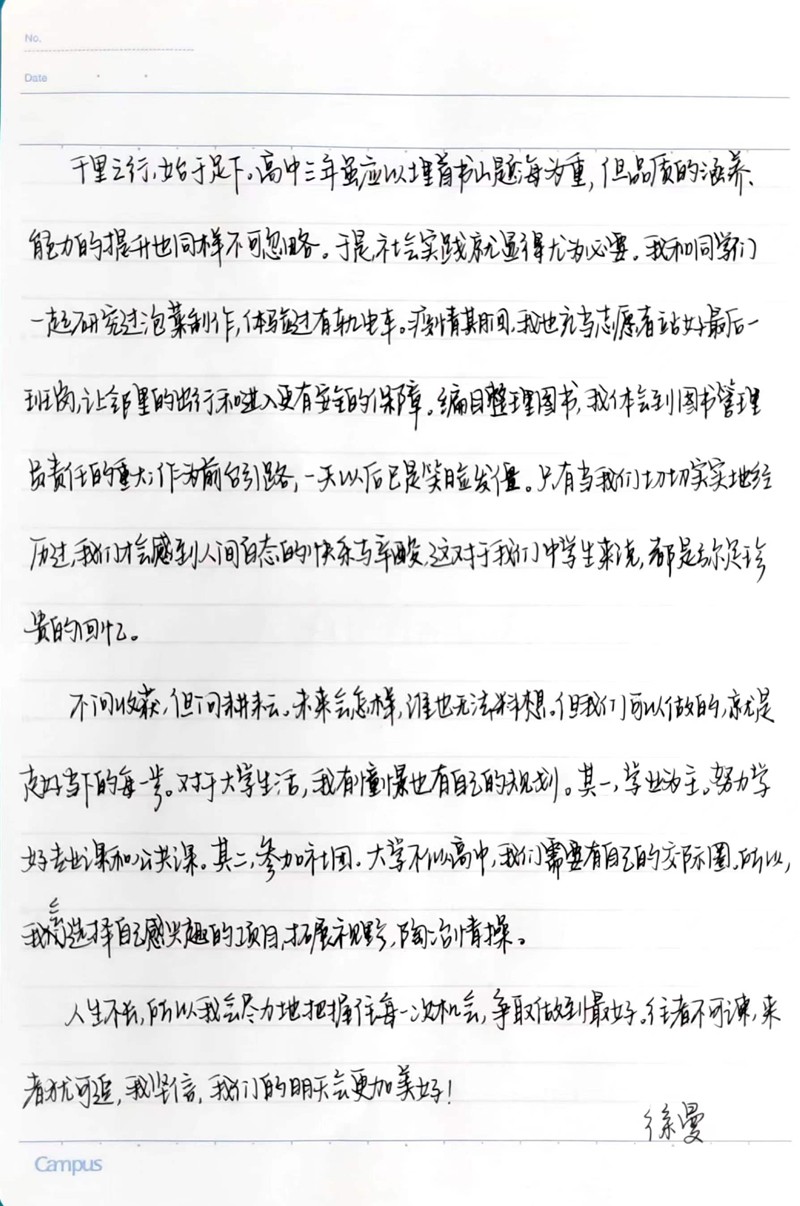 No.
Date
千里之行，始于足下。高中三年虽应以埋首书山题海为重，但品质的涵养、
能力的提升也同样不可忽略。于是，社会实践就显得尤为必要。我和同学们
一起研究过泡菜制作，体验过有轨电车。疫情期间，我也充当志愿者站好最后一
班岗，让邻里的出行和进入更有安全的保障。编目整理图书，我体会到图书管理
员责任的重大；作为前台引路，一天以后已是笑脸发僵。只有当我们切切实实地经
历过，我们才会感到人间百态的快乐与辛酸，这对于我们中学生来说，都是弥足珍
贵的回忆。
不问收获，但问耕耘。未来会怎样，谁也无法料想。但我们可以做的，就是
走好当下的每一步。对于大学生活，我有憧憬也有自己的规划。其一，学业为主。努力学
好专业课和公共课。其二，参加社团。大学不似高中，我们需要有自己的交际圈。所以，
我会选择自己感兴趣的项目，拓展视野，陶冶情操。
人生不长，所以我会尽力地把握住每一次机会，争取做到最好。往者不可谏，来
者犹可追，我坚信，我们的明天会更加美好！
徐曼
Campus